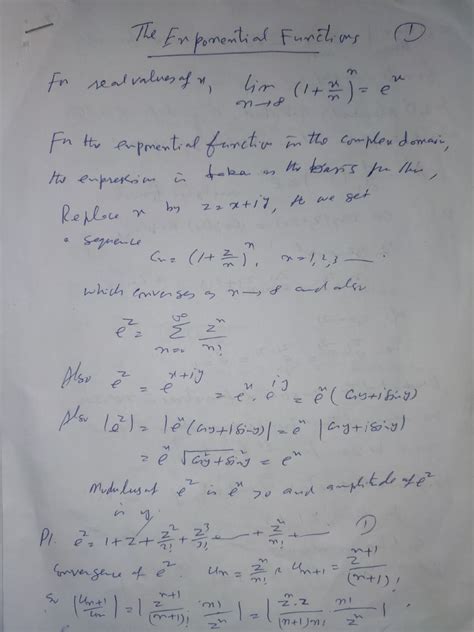 The Exponential Functions ①
For real values of x, lim n→∞ (1 + x/n)^n = e^x
For the exponential function in the complex domain,
the expression is taken as the basis for this,
Replace x by z = x+iy, we get
a sequence
Cn = (1 + z/n)^n, n = 1, 2, 3 —
which converges as n → ∞ and also
e^z = ∑ n=0 ∞ z^n/n!
Also e^z = e^{x+iy} = e^x · e^{iy} = e^x (Cosy + i Siny)
Also |e^z| = |e^x (Cosy + i Siny)| = e^x |Cosy + i Siny|
= e^x √(Cos²y + Sin²y) = e^x
Modulus of e^z is e^x > 0 and amplitude of e^z
is y.
P1. e^z = 1 + z + z²/2! + z³/3! — + z^n/n! — ①
Convergence of e^z. Un = z^n/n!, Un+1 = z^{n+1}/(n+1)!
So |Un+1/Un| = |z^{n+1}/(n+1)! · n!/z^n| = |z^n·z/(n+1)n! · n!/z^n|